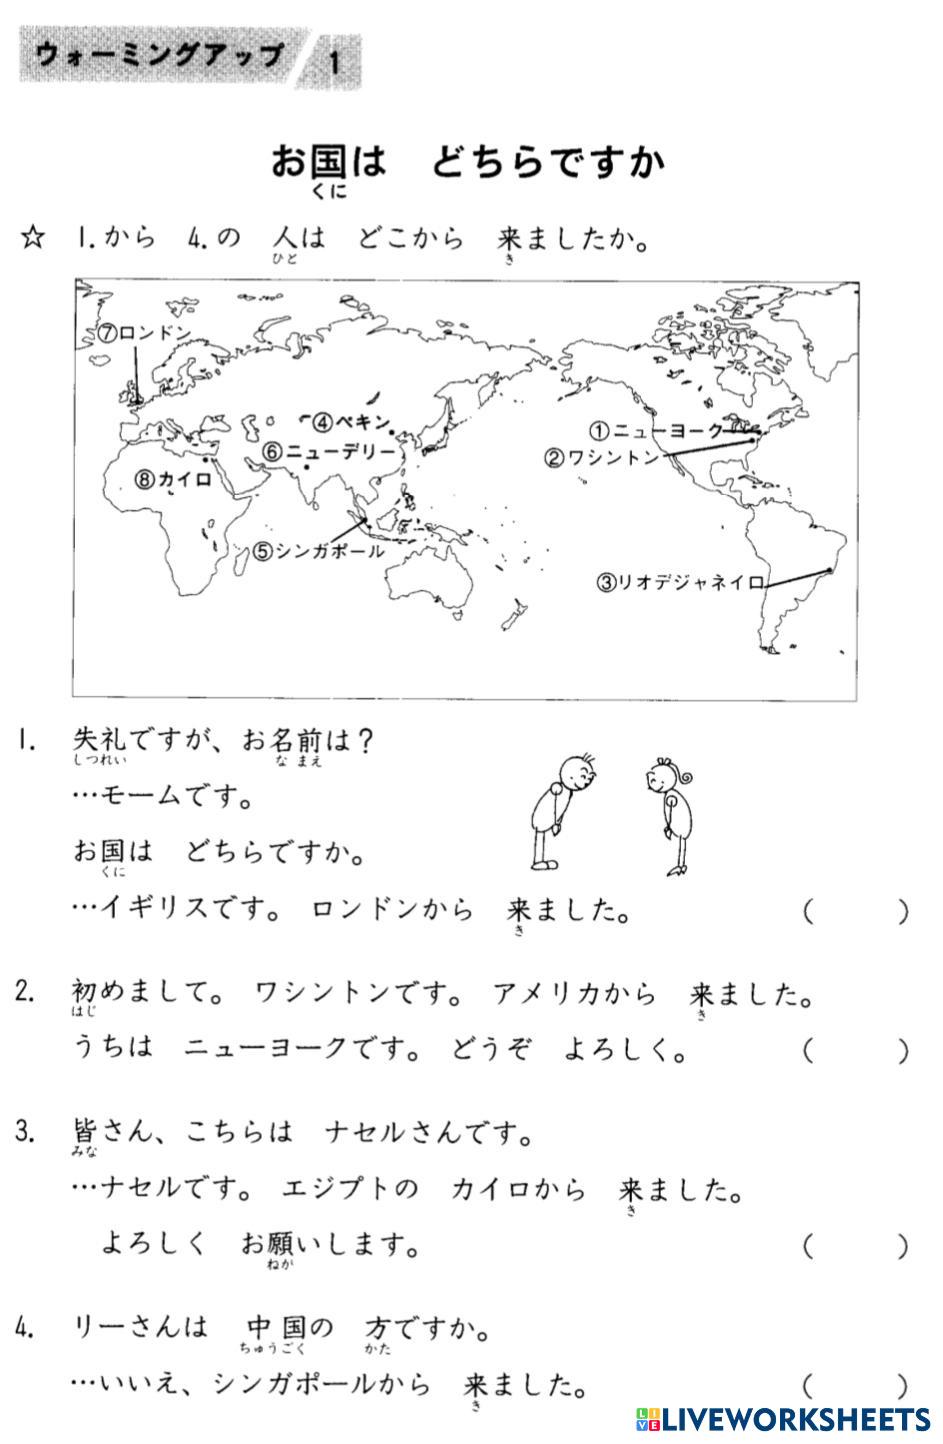 ウォーミングアップ 1
お国は どちらですか
くに
☆ 1.から 4.の 人は どこから 来ましたか。
ひと き
⑦ロンドン
④ペキン
①ニューヨーク
⑥ニューデリー
②ワシントン
⑧カイロ
⑤シンガポール
③リオデジャネイロ
1. 失礼ですが、お名前は？
しつれい な まえ
…モームです。
お国は どちらですか。
くに
…イギリスです。 ロンドンから 来ました。 ( )
き
2. 初めまして。 ワシントンです。 アメリカから 来ました。
はじ き
うちは ニューヨークです。 どうぞ よろしく。 ( )
3. 皆さん、こちらは ナセルさんです。
みな
…ナセルです。 エジプトの カイロから 来ました。
き
よろしく お願いします。 ( )
ねが
4. リーさんは 中国の 方ですか。
ちゅうごく かた
…いいえ、シンガポールから 来ました。 ( )
き
LIVE LIVEWORKSHEETS